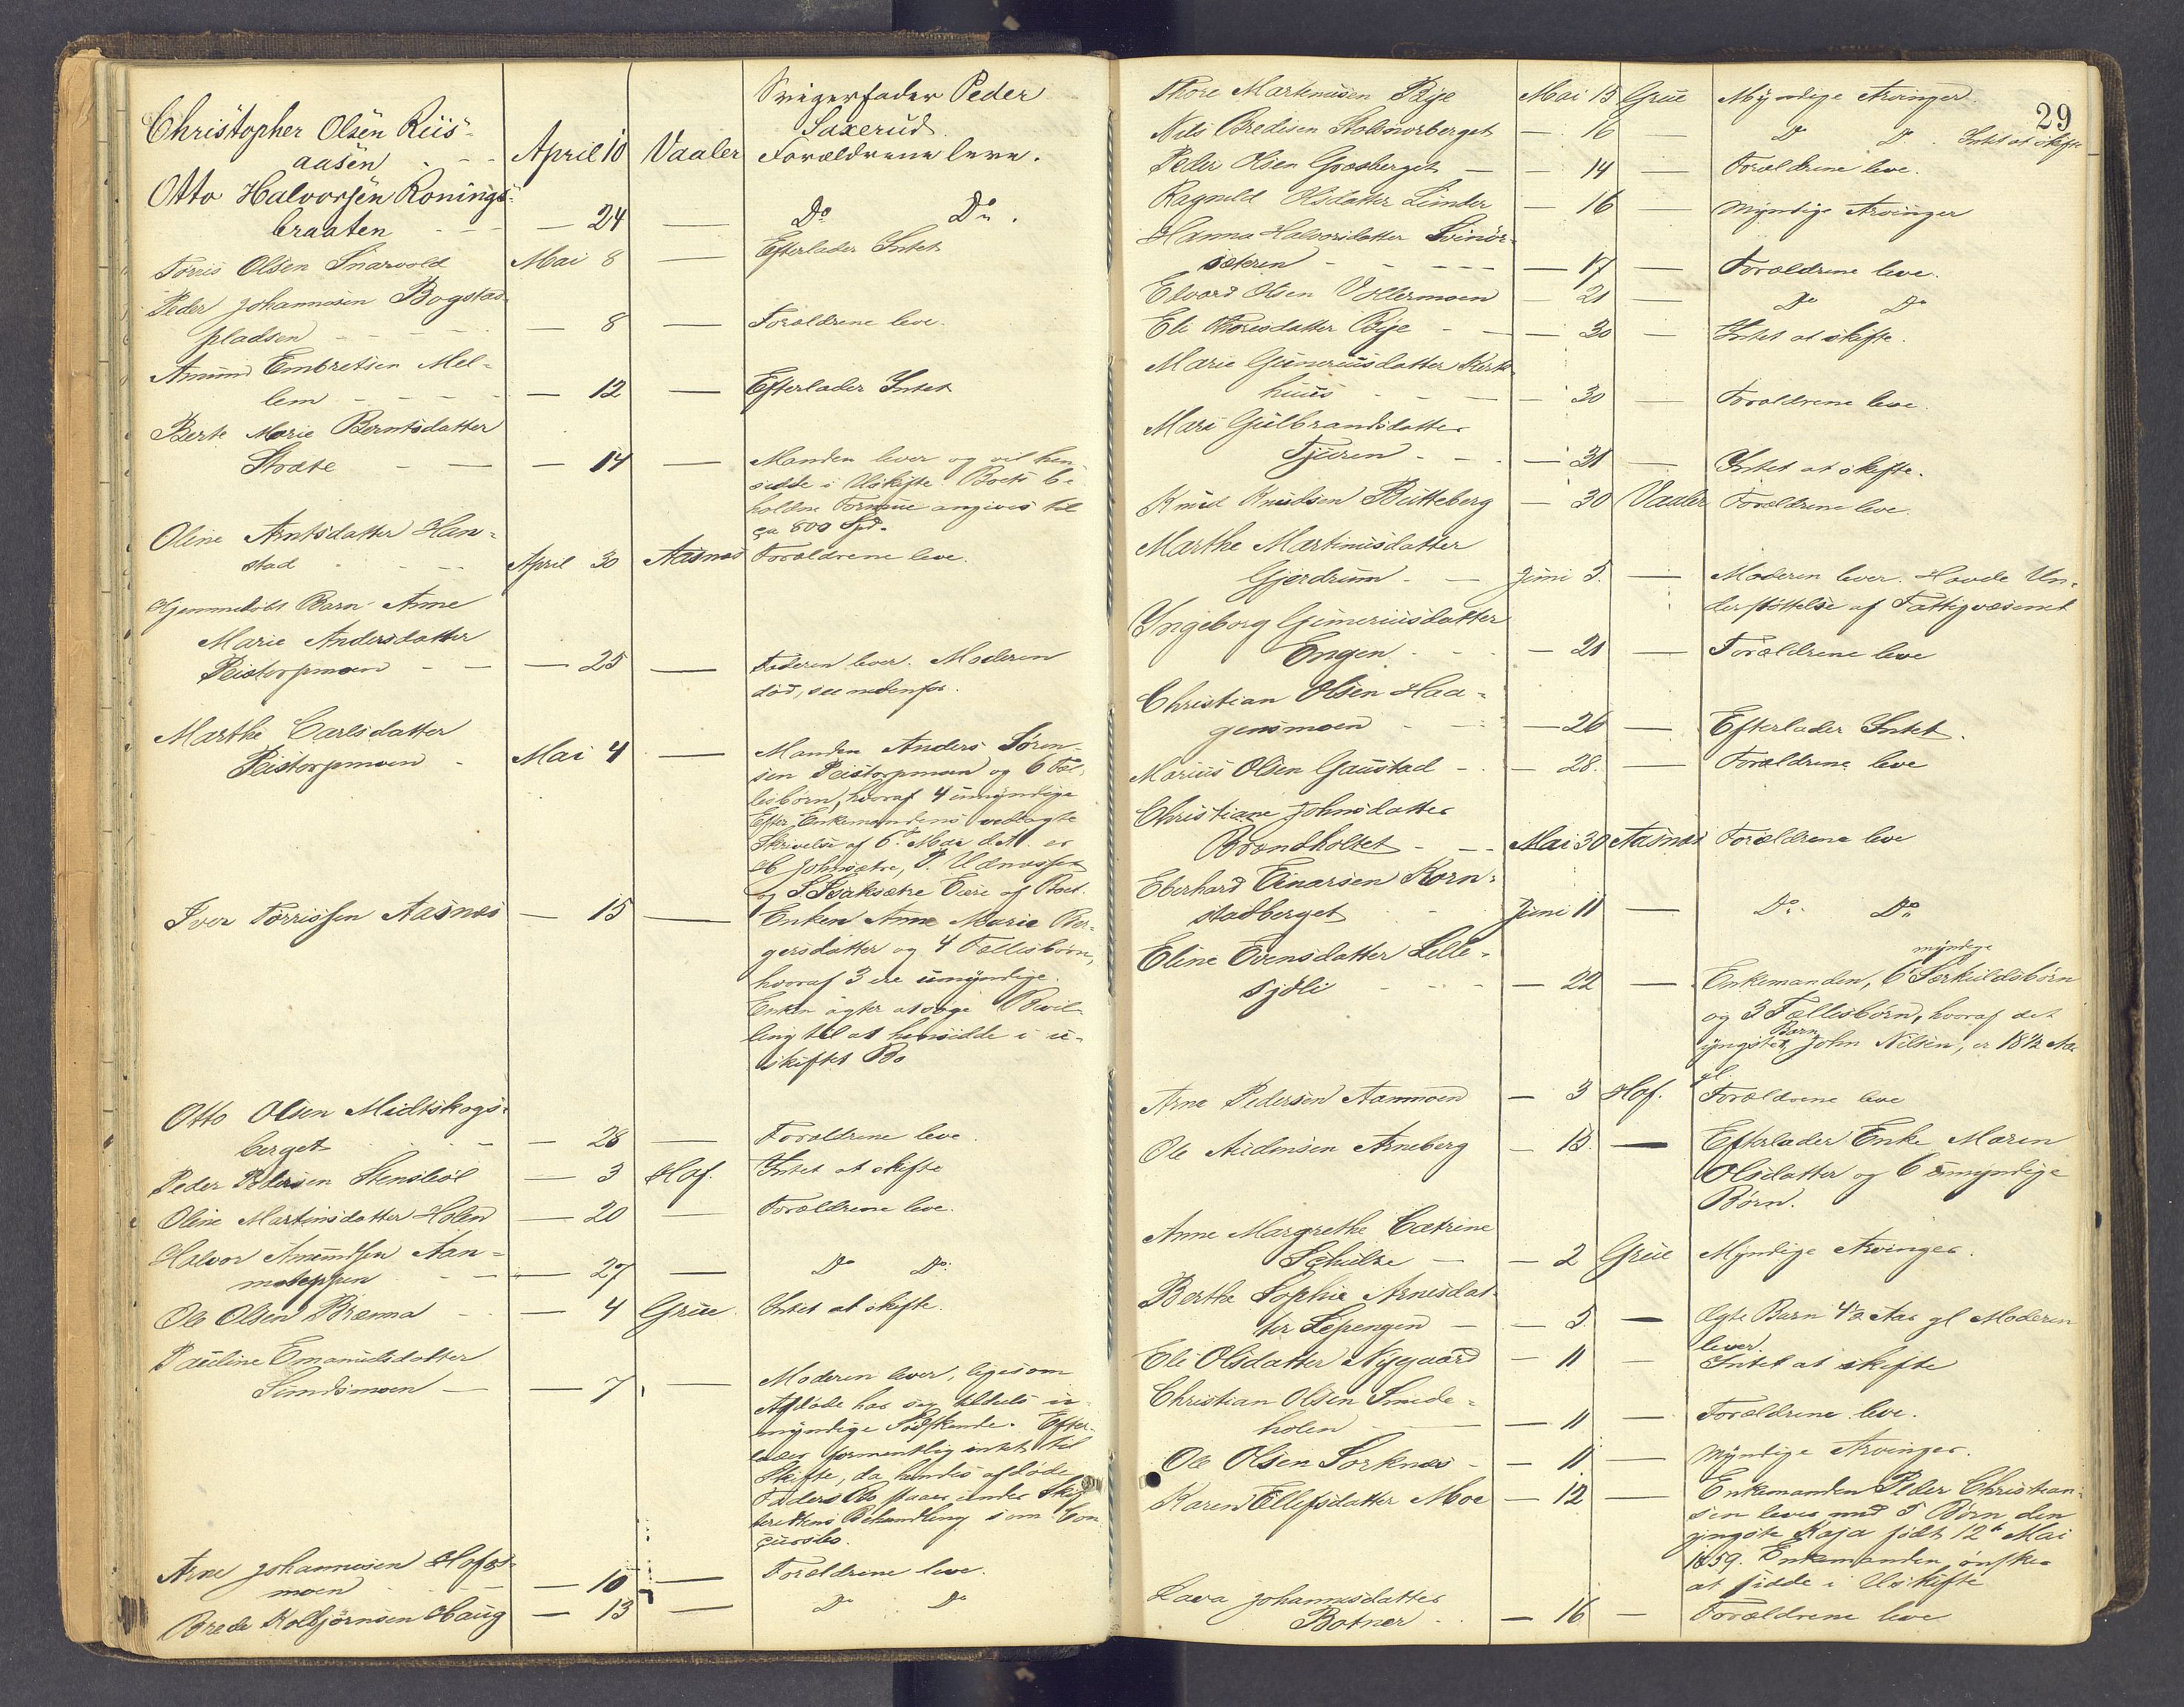 Svigerfader Peder
Saxerud.
Christopher Olsen Riis-
aasen - - April 10 Vaaler Forældrene leve.
Otto Halvorsen Konings-
braaten - - — 24 — Do Do.
Torris Olsen Snarvold Mai 8 — Efterlader Intet
Peder Johannesen Bogstad
pladsen - - - — 8 — Forældrene leve.
Amund Embretsen Mel-
lem - - - - — 12 — Efterlader Intet
Berte Marie Berntsdatter
Stræte - — — 14 — Manden lever og vil hen-
sidde i Uskifte. Boets be-
holdne Formue angives til
ca 800 Spd.
Oline Arntsdatter Han-
stad - - - April 30 Aasnæs Forældrene leve.
Hjemmedøbt Barn Anne
Marie Andersdatter
Peistorpmoen - — — 25 — Faderen lever. Moderen
død, see nedenfor.
Marthe Carlsdatter
Peistorpmoen - Mai 4 — Manden Anders Søren-
sen Peistorpmoen og 6 Fæl-
lesbørn, hvoraf 4 umyndige
Efter Enkemandens vedlagte
Skrivelse af 6te Mai d.A. er
og Isaksætre Eiere af Boet.
Iver Torrissen Aasnæs — 15 — Enken Anne Marie Bør-
gersdatter og 4 Fællesbørn,
hvoraf 3 ere umyndige.
Enken agter at søge Bevil-
ling til at hensidde i u-
skiftet Bo
Otto Olsen Midtskogs-
berget - - — 28 — Forældrene leve.
Peder Pedersen — 3 Hof. Intet at skifte
Oline Martinsdatter Holen — 20 — Forældrene leve.
Halvor Amundsen Aan-
- — 27 — Do Do.
Ole Olsen Brænna - — 4 Grue Intet at skifte.
Pauline Emanuelsdatter
Sundsmoen — — 7 — Moderen lever, ligesom
Afdøde har sin tildeels u-
myndige Sødskende. Efter-
lader formentlig intet til
Skifte, da hendes afdøde
Faders Bo staaer under Skif-
terettens Behandling som Con-
cursbo.
Arne Johannesen Hofs-
moen - - — 10 — Forældrene leve.
Brede Kolbjørnsen Haug — 13 — Do Do
29
Thore Martinusen Rye Mai 15 Grue Myndige Arvinger.
Nils Bredesen — 16 — Do Do. Intet at skifte
Peder Olsen Gransberget — — 14 — Forældrene leve.
Ragnild Olsdatter Lunder — 16 — Myndige Arvinger
Hanna Halvorsdatter
sætren - - - — 17 — Forældrene leve.
Edvard Olsen Vollermoen — 21 — Do Do
Eli Thoresdatter Rye - — — 30 — Intet at skifte.
Marie Gunerusdatter Kirke-
huus - - — 30 — Forældrene leve
Mari Gulbrandsdatter
Tjuren - - — 31 — Intet at skifte.
Knud Knudsen Butteberg — 30 Vaaler Forældrene leve.
Marthe Martinusdatter
Gjerdrum - — Juni 5. — Moderen lever. Havde Un-
derstøttelse af Fattigvæsenet
Ingeborg Gunerusdatter
Engen - - - — 21 — Forældrene leve
Christian Olsen Haa-
gensmoen - - — 26 — Efterlader Intet.
Marius Olsen Gaustad - - — 28. — Forældrene leve
Christiane Johnsdatter
Brændholtet - - Mai 30 Aasnæs Forældrene leve
Eberhard Einarsen Korn-
stadberget - - Juni 11 — Do. Do.
Eline Evensdatter Lille-
sjøli - - - — 22 — Enkemanden, 6 myndige Særkuldsbørn
og 3 Fællesbørn, hvoraf det
yngste Barn, John Nilsen, er 18 1/2 Aar
gl.
Arne Pedersen Aanmoen — 3 Hof. Forældrene leve
Ole Audensen Arneberg — 15. — Efterlader Enke Maren
Olsdatter og 6 umyndige
Børn.
Anne Margrethe Catrine
Schulze — — 2 Grue Myndige Arvinger.
Berthe Sophie Arnesdat-
ter — — 5. — Ægte Barn 4 1/2 Aar gl Moderen
lever.
Eli Olsdatter Nygaard — 11 — Intet at skifte
Christian Olsen Smede-
holen — — 11 — Forældrene leve.
Ole Olsen Sorknæs - — 11 — Myndige Arvinger.
Karen Ellefsdatter Moe — 12 — Enkemanden Peder Christian-
sen lever med 5 Børn den
yngste Kaja født 12te Mai
1859. Enkemanden ønsker
at sidde i Uskifte
Lava Johannesdatter
Botner - - — 16 — Forældrene leve